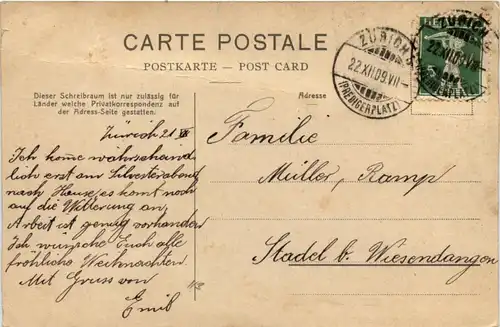 CARTE POSTALE
POSTKARTE - POST CARD
Dieser Schreibraum ist nur zulässig für
Länder welche Privatkorrespondenz auf
der Adress-Seite gestatten.
Adresse
ZÜRICH
22.XII.09.VII-
(PREDIGERPLATZ)
ZÜRICH
22.XII.09.VII-
Zürich 21 XII
Ich kome wahrscheind
lich erst am Silvesterabend
nach Hause, es komt noch
auf die Witterung an,
Arbeit ist genug vorhanden
Ich wünsche Euch alle
fröhliche Weihnachten.
Mit Gruss von
Emil
Familie
Müller, Ramp
Stadel b. Wiesendangen